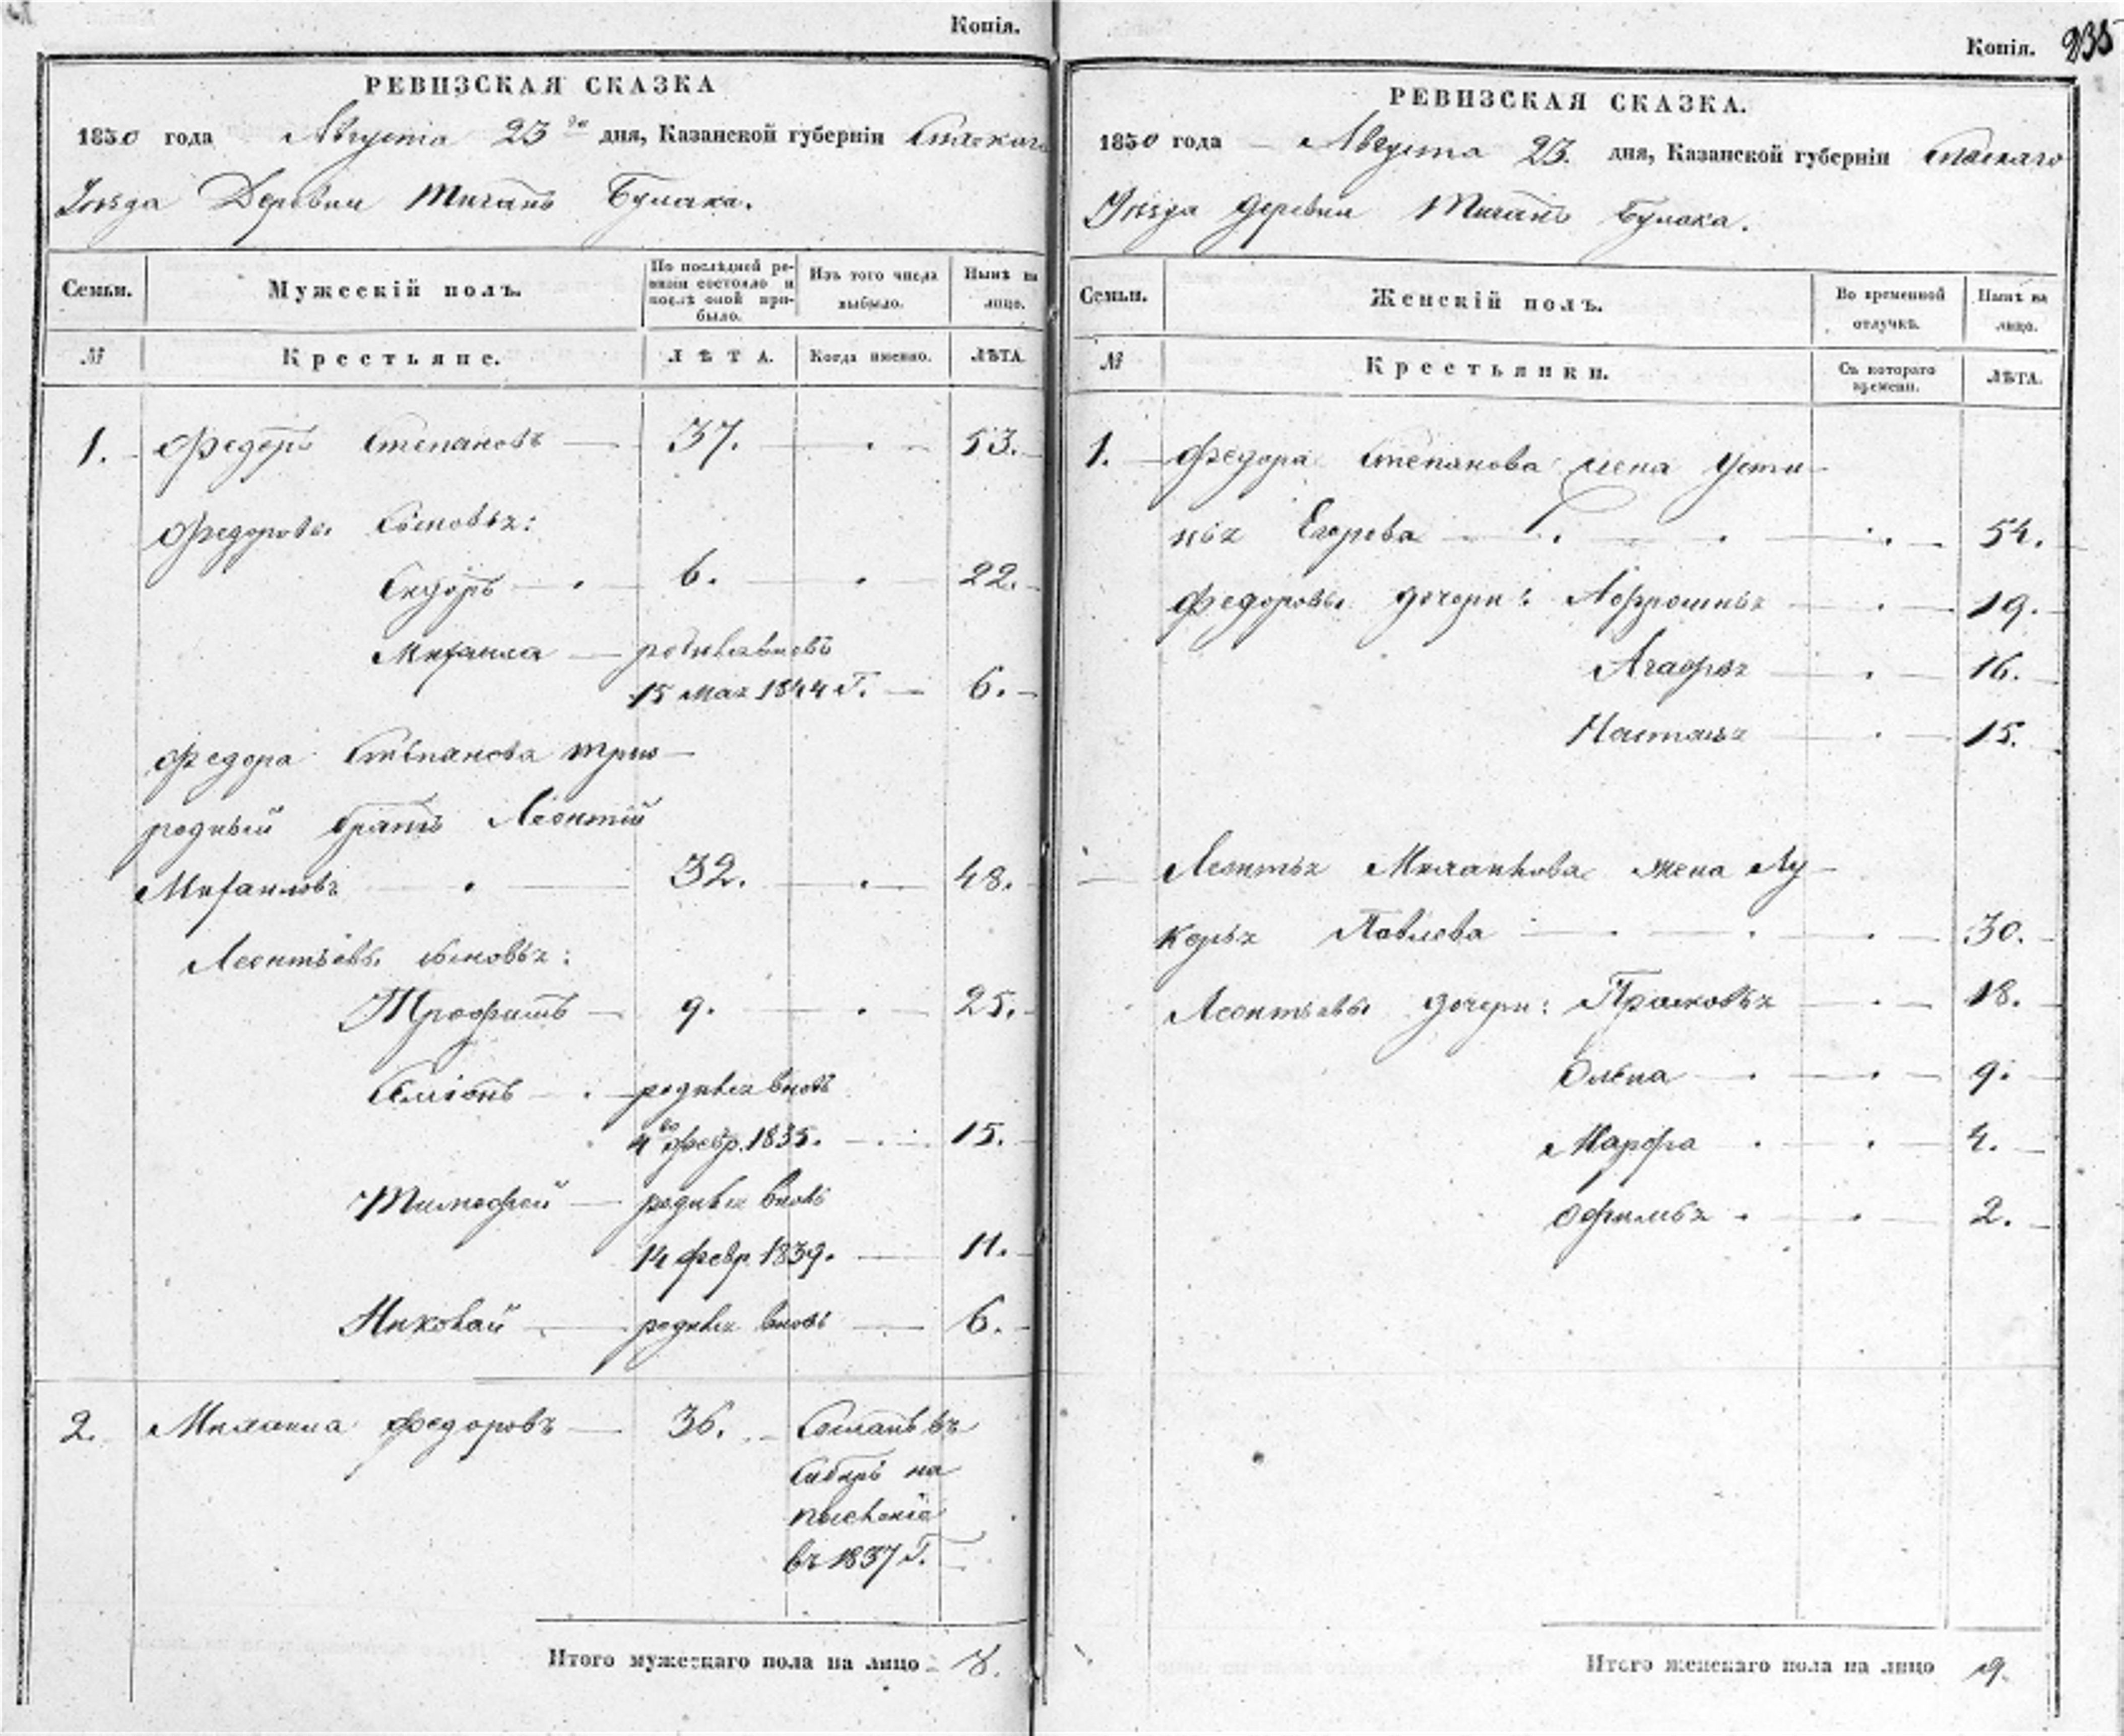 Копія.
РЕВИЗСКАЯ СКАЗКА
1850 года Августа 23 го дня, Казанской губерніи Спаскаго
Уѣзда Деревни Мичанъ Булака.
Семьи.
Мужескій полъ.
По послѣдней ре-
визіи состояло и
послѣ оной при-
было.
Изъ того числа
выбыло.
Нынѣ на
лицо.
№
Крестьяне.
ЛѢТА.
Когда именно.
ЛѢТА.
1. Федоръ Степановъ 37. 53.
Федоровы сыновья:
Сидоръ 6. 22.
Михаила родивыйся вновь
15 мая 1844 г. 6.
Федора Степанова трою-
родный братъ Леонтій
Михаиловъ 32. 48.
Леонтьевы сыновья:
Трофимъ 9. 25.
Семіонъ родился вновь
4 го февр. 1835. 15.
Тимофей родился вновь
14 февр. 1839. 11.
Николай родился вновь 6.
2. Михаила Федоровъ 36. Сосланъ въ
Сибирь на
поселеніе
въ 1837 г.
Итого мужескаго пола на лицо 8.
Копія. 235
РЕВИЗСКАЯ СКАЗКА.
1850 года Августа 23. дня, Казанской губерніи Спаскаго
Уѣзда деревни Мичанъ Булака.
Семьи.
Женскій полъ.
Во временной
отлучкѣ.
Нынѣ на
лицо.
№
Крестьянки.
Съ котораго
времени.
ЛѢТА.
1. Федора Степанова жена Усти-
нья Егорова 54.
Федоровы дочери: Афрошинья 19.
Агафья 16.
Настасья 15.
Леонтья Михаилова жена Лу-
керья Павлова 30.
Леонтьевы дочери: Прасковья 18.
Олена 9.
Марфа 4.
Офимья 2.
Итого женскаго пола на лицо 9.